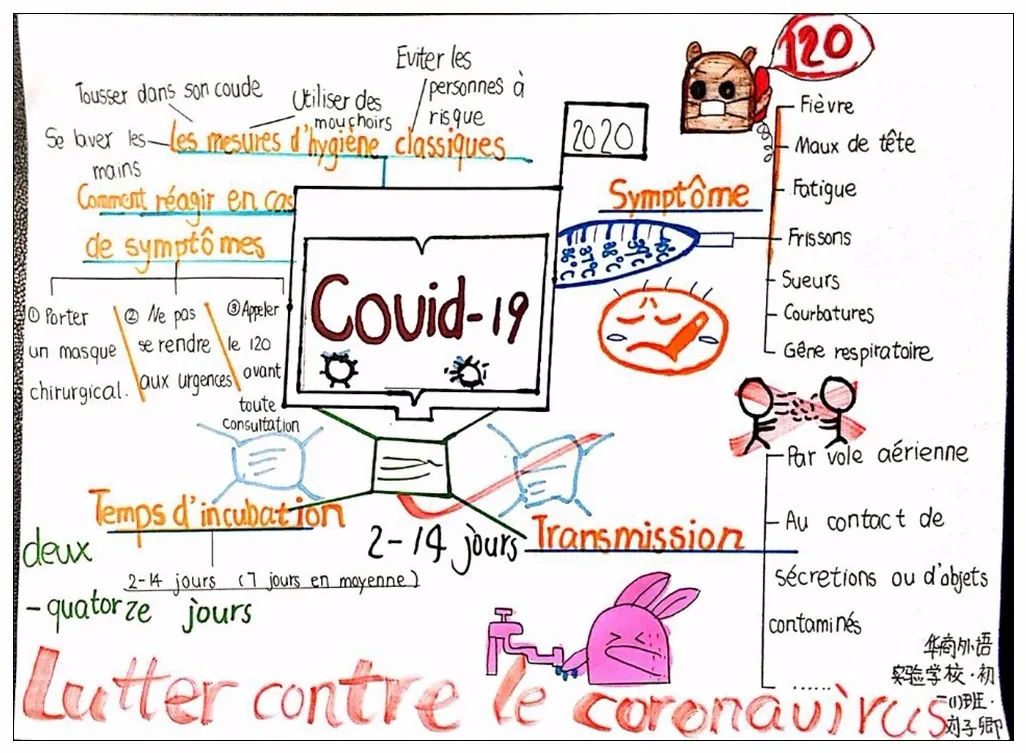 Eviter les
personnes à
risque
Tousser dans son coude
Utiliser des
mouchoirs
Se laver les
mains
Les mesures d'hygiène classiques
Comment réagir en cas
de symptômes
① Porter
un masque
chirurgical.
② Ne pas
se rendre
aux urgences
③ Appeler
le 120
avant
toute
consultation
2020
Covid-19
120
Symptôme
36°C
37°C
38°C
39°C
40°C
Fièvre
Maux de tête
Fatigue
Frissons
Sueurs
Courbatures
Gêne respiratoire
Temps d'incubation
2-14 jours (7 jours en moyenne)
deux
-quatorze jours
2-14 jours
Transmission
Par voie aérienne
Au contact de
sécretions ou d'objets
contaminés
......
Lutter contre le coronavirus
华商外语
实验学校·初
二(1)班·
刘子卿